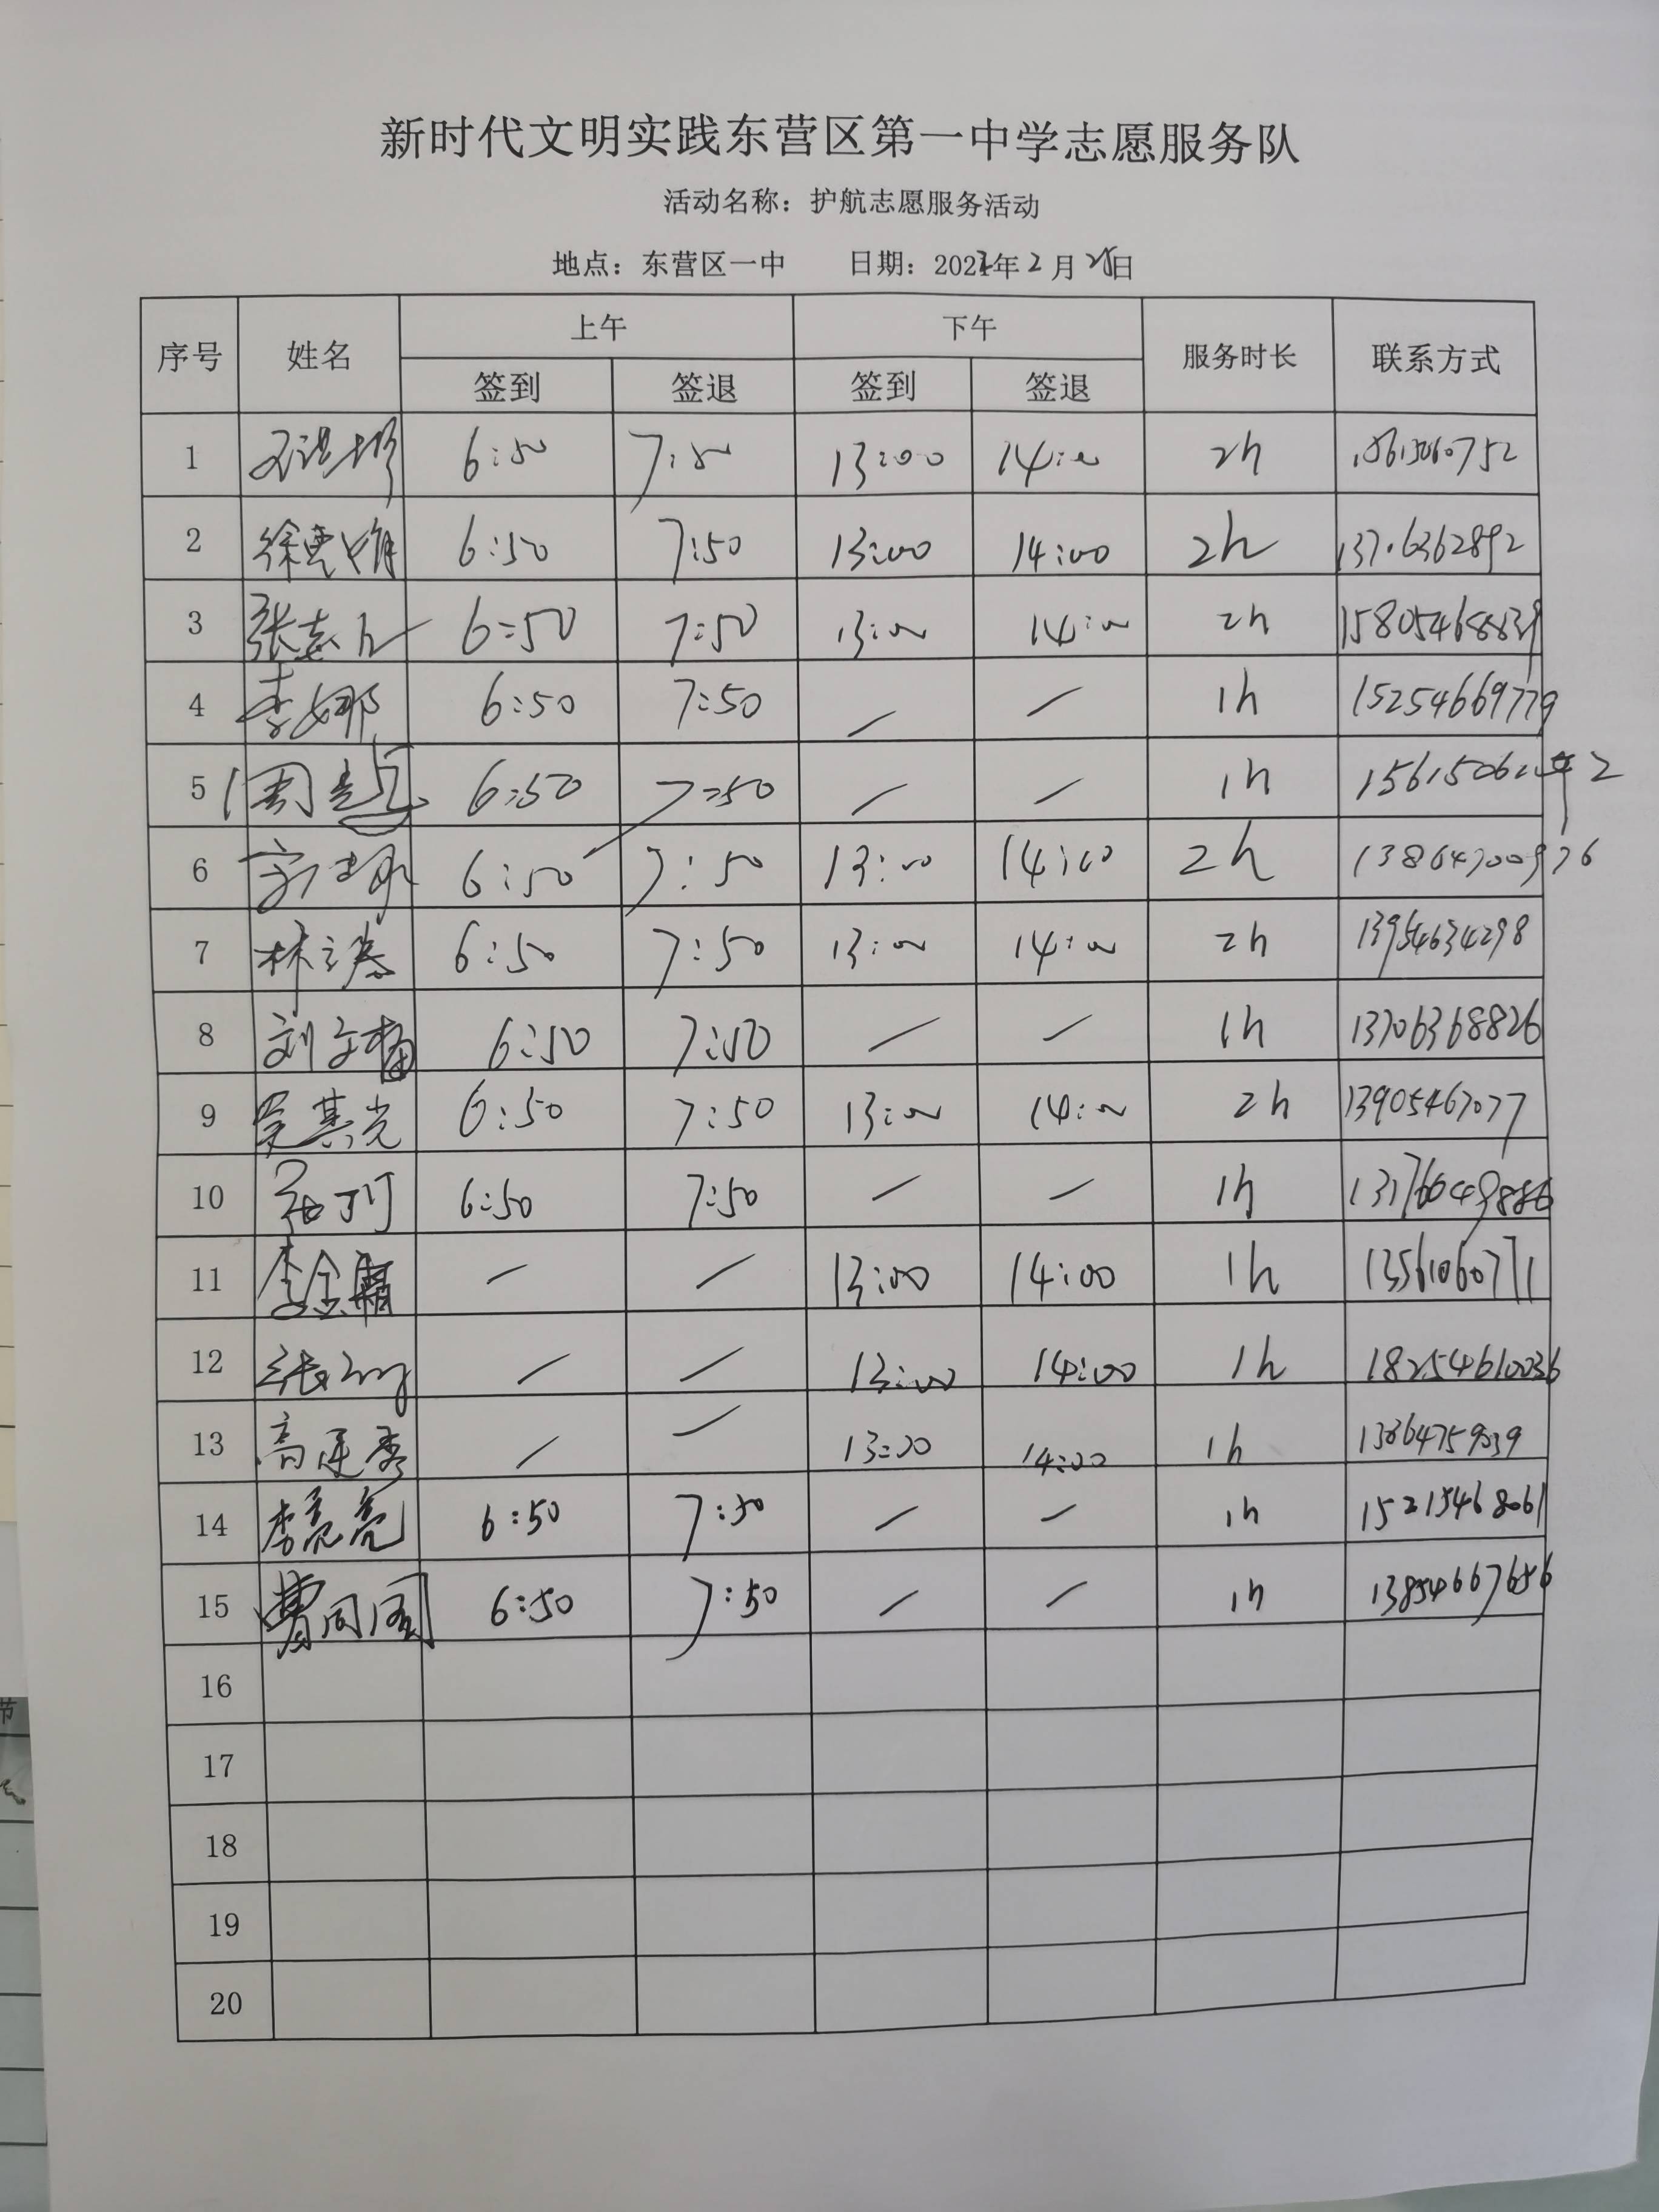 新时代文明实践东营区第一中学志愿服务队
活动名称：护航志愿服务活动
地点：东营区一中 日期：2022年2月 日
序号 姓名 上午 下午 服务时长 联系方式
签到 签退 签到 签退
1 6:50 7:50 13:00 14:00 2h
2 6:50 7:50 13:00 14:00 2h 13706362892
3 6:50 7:50 13:00 14:00 2h 15805468839
4 李娜 6:50 7:50 / / 1h 15254669779
5 6:50 7:50 / / 1h
6 6:50 7:50 13:00 14:00 2h 13864700976
7 6:50 7:50 13:00 14:00 2h 13954634298
8 6:50 7:50 / / 1h 13706368826
9 6:50 7:50 13:00 14:00 2h 13905467077
10 6:50 7:50 / / 1h 13176649886
11 / / 13:00 14:00 1h 13561060771
12 / / 13:00 14:00 1h 18254610036
13 / / 13:00 14:00 1h 13864759039
14 李亮亮 6:50 7:50 / / 1h 15215468061
15 6:50 7:50 / / 1h 13854667656
16
17
18
19
20
节